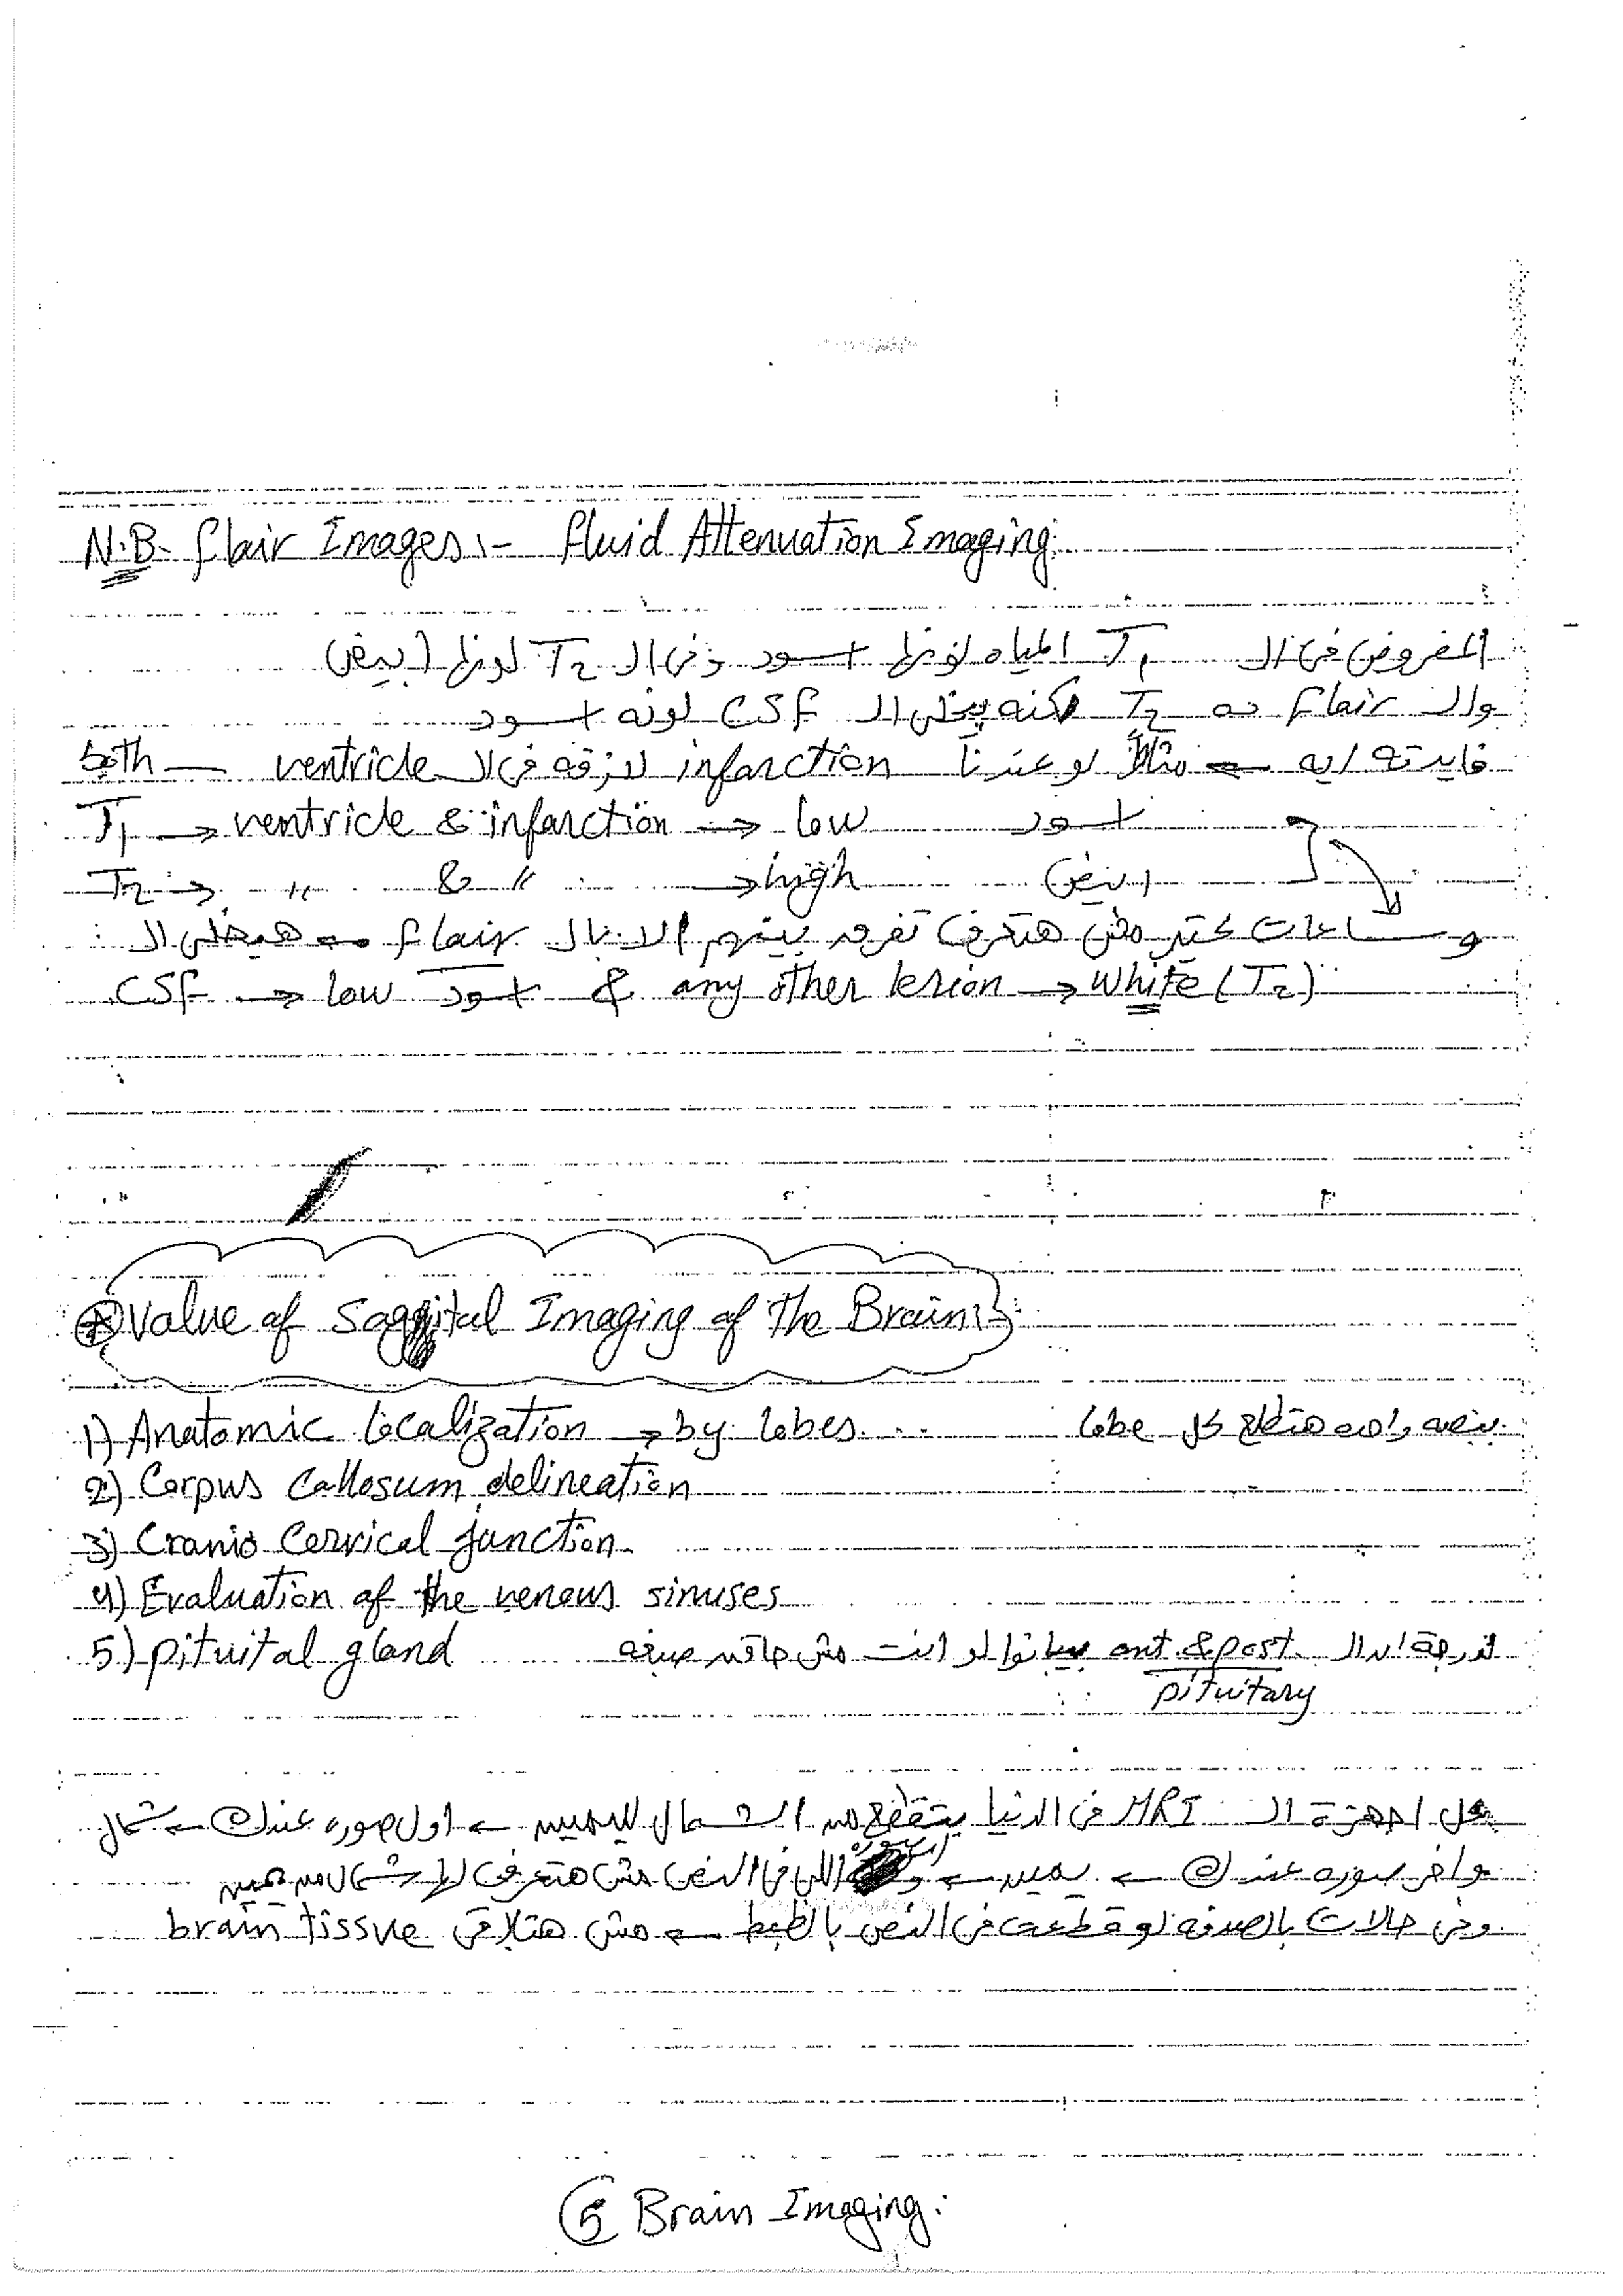 N.B. flair Images:- fluid Attenuation Imaging:
المفروض فى ال T1 المياه لونها اسود وفى ال T2 لونها ابيض
وال flair ده T2 لكنه بيخلى ال CSF لونه اسود
فايدته ايه ← مثلاً لو عندنا infarction لازقه فى ال ventricle — both
T1 → ventricle & infarction → low اسود
T2 → " & " → high ابيض
وساعات كتير مش هتعرف تفرق بينهم الا بال flair ← هيخلى ال
CSF → low اسود & any other lesion → white (T2)
Value of Saggital Imaging of The Brain:
1) Anatomic localization → by lobes... كل lobe
2) Corpus Callosum delineation
3) Cranio Cervical junction
4) Evaluation of the venous sinuses
5) pituital gland لدرجة ان ال ant & post بيبانوا لو انت مش
pituitary
كل اجهزة ال MRI فى الدنيا بتقطع من الشمال لليمين ← اول صوره عندك ← شمال
واخر صوره عندك ← يمين ← اللى فى النص مش هتعرف لها شمال من يمين
وفى حالات بالصدفه لو قطعت فى النص بالظبط ← مش هتلاقى brain tissue
5 Brain Imaging: